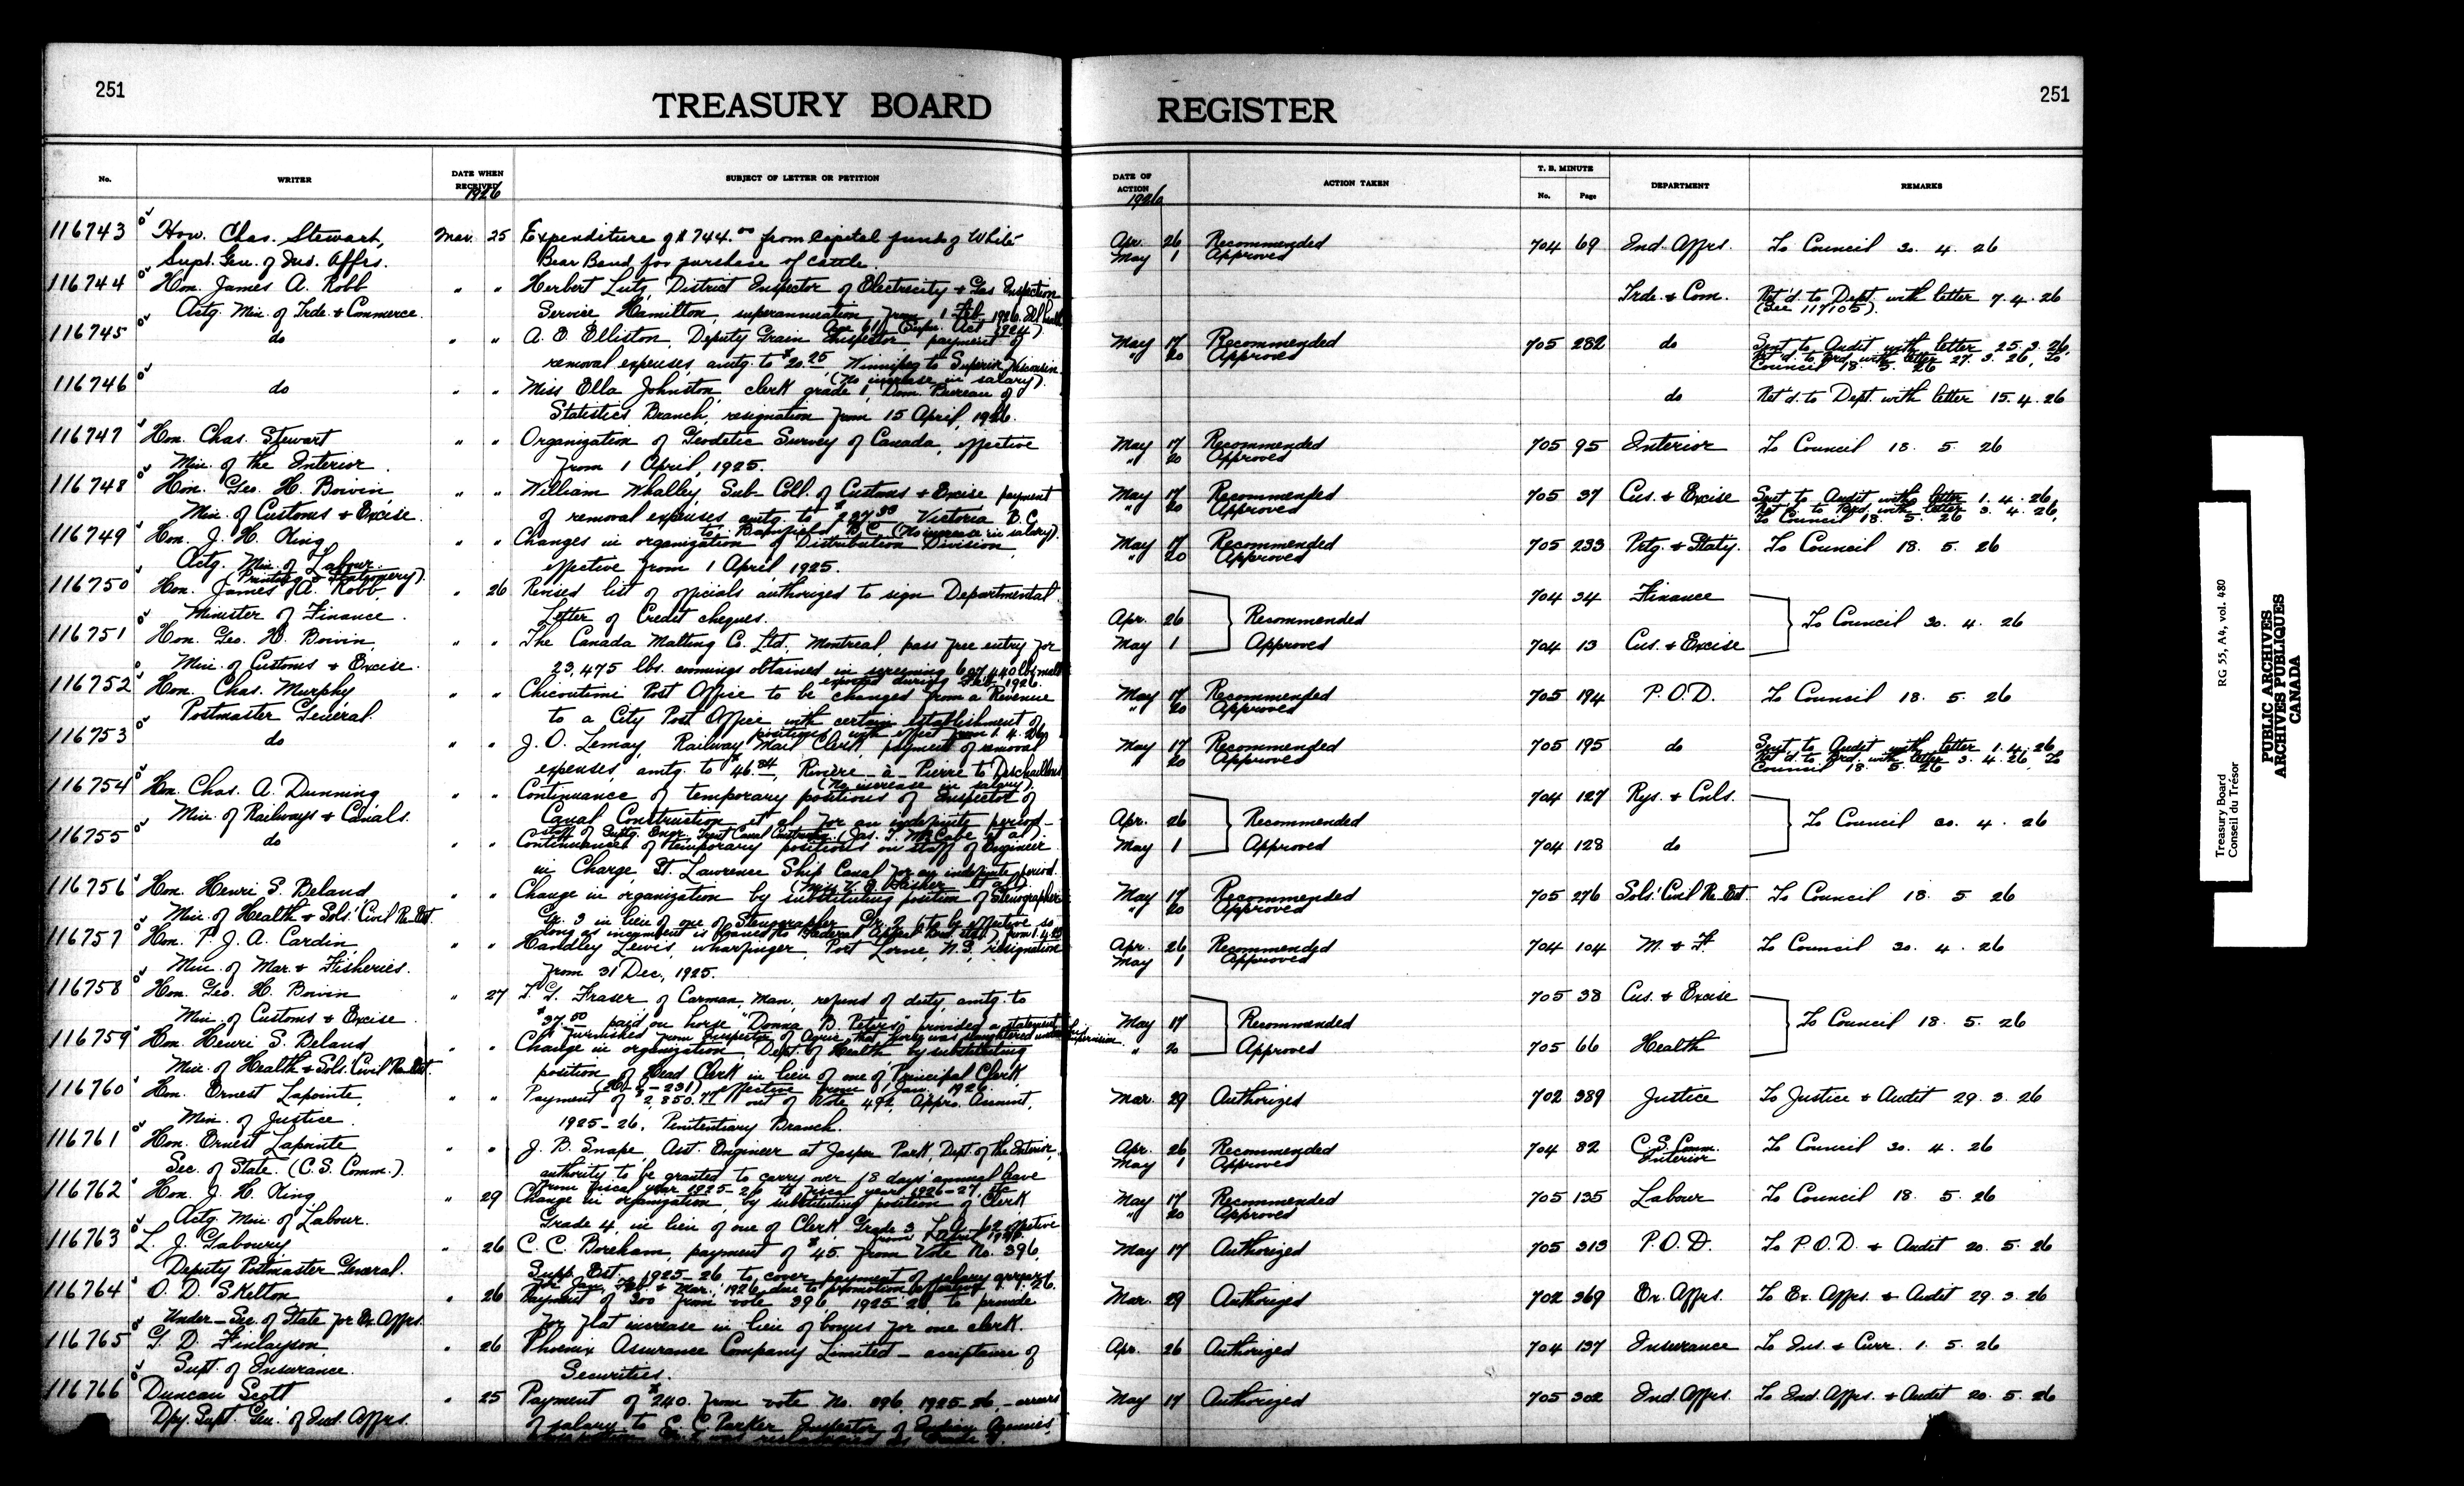 251
TREASURY BOARD
REGISTER
251
No.
WRITER
DATE WHEN RECEIVED
1926
SUBJECT OF LETTER OR PETITION
DATE OF ACTION
1926
ACTION TAKEN
T. B. MINUTE
No.
Page
DEPARTMENT
REMARKS
116743 Hon. Chas. Stewart, Mar. 25 Expenditure of $744.00 from Capital fund of White Apr. 26 Recommended 704 69 Ind. Affrs. To Council 30. 4. 26
Supt. Gen. of Ind. Affrs. Bear Band for purchase of cattle. May 1 Approved
116744 Hon. James A. Robb " " Herbert Lutz, District Inspector of Electricity & Gas Inspection Trde. & Com. Ret'd. to Dept. with letter 7. 4. 26
Actg. Min. of Trde. & Commerce. Service Hamilton, superannuation from 1 Feb. 1926. (See 117105).
Age 61, (Super. Act 1924).
116745 do " " A. E. Elliston, Deputy Grain Inspector, payment of May 17 Recommended 705 282 do Sent to Audit with letter 25. 3. 26,
removal expenses, amtg. to $20.25, Winnipeg to Superior Wisconsin. " 20 Approved Ret'd. to Brd. with letter 27. 3. 26, To
(No increase in salary). Council 18. 5. 26
116746 do " " Miss Ella Johnston, clerk grade 1, Dom. Bureau of do Ret'd. to Dept. with letter 15. 4. 26
Statistics Branch, resignation from 15 April, 1926.
116747 Hon. Chas. Stewart " " Organization of Geodetic Survey of Canada, effective May 17 Recommended 705 95 Interior To Council 18. 5. 26
Min. of the Interior. from 1 April, 1925. " 20 Approved
116748 Hon. Geo. H. Boivin, " " William Whalley, Sub-Coll. of Customs & Excise payment May 17 Recommended 705 37 Cus. & Excise Sent to Audit with letter 1. 4. 26,
Min. of Customs & Excise. of removal expenses amtg. to Victoria B.C. " 20 Approved Ret'd. to Brd. with letter 3. 4. 26,
to Bamfield B.C. (No increase in salary). To Council 18. 5. 26
116749 Hon. J. H. King " " Changes in organization of Distribution Division, May 17 Recommended 705 233 Prtg. & Staty. To Council 18. 5. 26
Actg. Min. of Labour. effective from 1 April, 1925. " 20 Approved
(Printing &
116750 Hon. James A. Robb, " 26 Revised list of officials authorized to sign Departmental 704 34 Finance
Minister of Finance. Letter of Credit cheques. Apr. 26 Recommended To Council 30. 4. 26
116751 Hon. Geo. H. Boivin, " " The Canada Malting Co. Ltd., Montreal, pass free entry for May 1 Approved 704 13 Cus. & Excise
Min. of Customs & Excise. 23,475 lbs. cummings obtained in screening 607,440 lbs. malt
exported during Feb. 1926.
116752 Hon. Chas. Murphy " " Chicoutimi Post Office to be changed from a Revenue May 17 Recommended 705 194 P.O.D. To Council 18. 5. 26
Postmaster General. to a City Post Office with certain establishment of " 20 Approved
positions with effect from 1. 4. 26
116753 do " " J. O. Lemay, Railway Mail Clerk, payment of removal May 17 Recommended 705 195 do Sent to Audit with letter 1. 4. 26
expenses, amtg. to $46.84, Rivière-à-Pierre to Deschaillons " 20 Approved Ret'd. to Brd. with letter 3. 4. 26, To
(No increase in salary). Council 18. 5. 26
116754 Hon. Chas. A. Dunning " " Continuance of temporary positions of Inspector of 704 127 Rys. & Cnls.
Min. of Railways & Canals. Canal Construction et al for an indefinite period- Apr. 26 Recommended To Council 30. 4. 26
staff of Suptg. Engr. Trent Canal (Jas. T. McCabe et al).
116755 do " " Continuance of temporary positions on staff of Engineer May 1 Approved 704 128 do
in Charge St. Lawrence Ship Canal for an indefinite period.
116756 Hon. Henri S. Beland " " Change in organization by substituting position of Stenographer May 17 Recommended 705 276 Sols'. Civil Re-Est. To Council 18. 5. 26
Min. of Health & Sols'. Civil Re-Est. Gr. 3 in lieu of one of Stenographer Gr. 2 to be effective so " 20 Approved
long as incumbent is loaned to Federal Appeal Board
116757 Hon. P. J. A. Cardin, " " Handley Lewis, wharfinger, Port Lorne, N.S., resignation Apr. 26 Recommended 704 104 M. & F. To Council 30. 4. 26
Min. of Mar. & Fisheries. from 31 Dec., 1925. May 1 Approved
116758 Hon. Geo. H. Boivin " 27 T. G. Fraser of Carman, Man. refund of duty, amtg. to 705 38 Cus. & Excise
Min. of Customs & Excise. $37.50 paid on horse "Donna B. Peters" provided a statement May 17 Recommended To Council 18. 5. 26
is furnished from Inspector of Agric. that horse was slaughtered under his supervision.
116759 Hon. Henri S. Beland " " Change in organization, Dept. of Health by substituting " 20 Approved 705 66 Health
Min. of Health & Sols'. Civil Re-Est. position of Head Clerk in lieu of one of Principal Clerk
effective from 1 Jan. 1926.
116760 Hon. Ernest Lapointe, " " Payment of $2,850.77 out of Vote 492, Appro. Account, Mar. 29 Authorized 702 389 Justice To Justice & Audit 29. 3. 26
Min. of Justice. 1925-26, Penitentiary Branch.
116761 Hon. Ernest Lapointe " " J. B. Snape, Ast. Engineer at Jasper Park, Dept. of the Interior, Apr. 26 Recommended 704 82 C.S. Comm. To Council 30. 4. 26
Sec. of State. (C.S. Comm.). authority to be granted to carry over 18 days' annual leave May 1 Approved Interior
from fiscal year 1925-26 to fiscal year 1926-27, etc.
116762 Hon. J. H. King " 29 Change in organization, by substituting position of Clerk May 17 Recommended 705 135 Labour To Council 18. 5. 26
Actg. Min. of Labour. Grade 4, in lieu of one of Clerk Grade 3 effective " 20 Approved
from 1 April 1926.
116763 L. J. Gaboury " 26 C. C. Boreham, payment of $45. from Vote No. 396, May 17 Authorized 705 313 P.O.D. To P.O.D. & Audit 20. 5. 26
Deputy Postmaster General. Supp. Est. 1925-26 to cover payment of salary arrears
for Jan., Feb. & Mar. 1926, due to promotion effective 1. 1. 26.
116764 O. D. Skelton " 26 Payment of $300 from vote 396, 1925-26, to provide Mar. 29 Authorized 702 369 Ex. Affrs. To Ex. Affrs. & Audit 29. 3. 26
Under-Sec. of State for Ex. Affrs. for flat increase in lieu of bonus for one clerk.
116765 G. D. Finlayson " 26 Phoenix Assurance Company Limited - acceptance of Apr. 26 Authorized 704 137 Insurance To Ins. & Curr. 1. 5. 26
Supt. of Insurance. Securities.
116766 Duncan Scott " 25 Payment of $240. from vote No. 396, 1925-26, - arrears May 17 Authorized 705 302 Ind. Affrs. To Ind. Affrs. & Audit 20. 5. 26
Dpy. Supt. Gen. of Ind. Affrs. of salary to E. C. Parker Inspector of Indian Agencies,
Treasury Board
Conseil du Trésor
RG 55, A4, vol. 480
PUBLIC ARCHIVES
ARCHIVES PUBLIQUES
CANADA